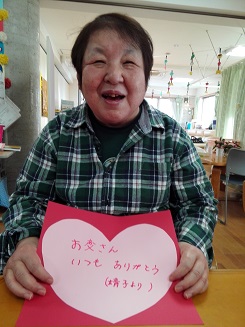 お母さん
いつも ありがとう
(晴子より)